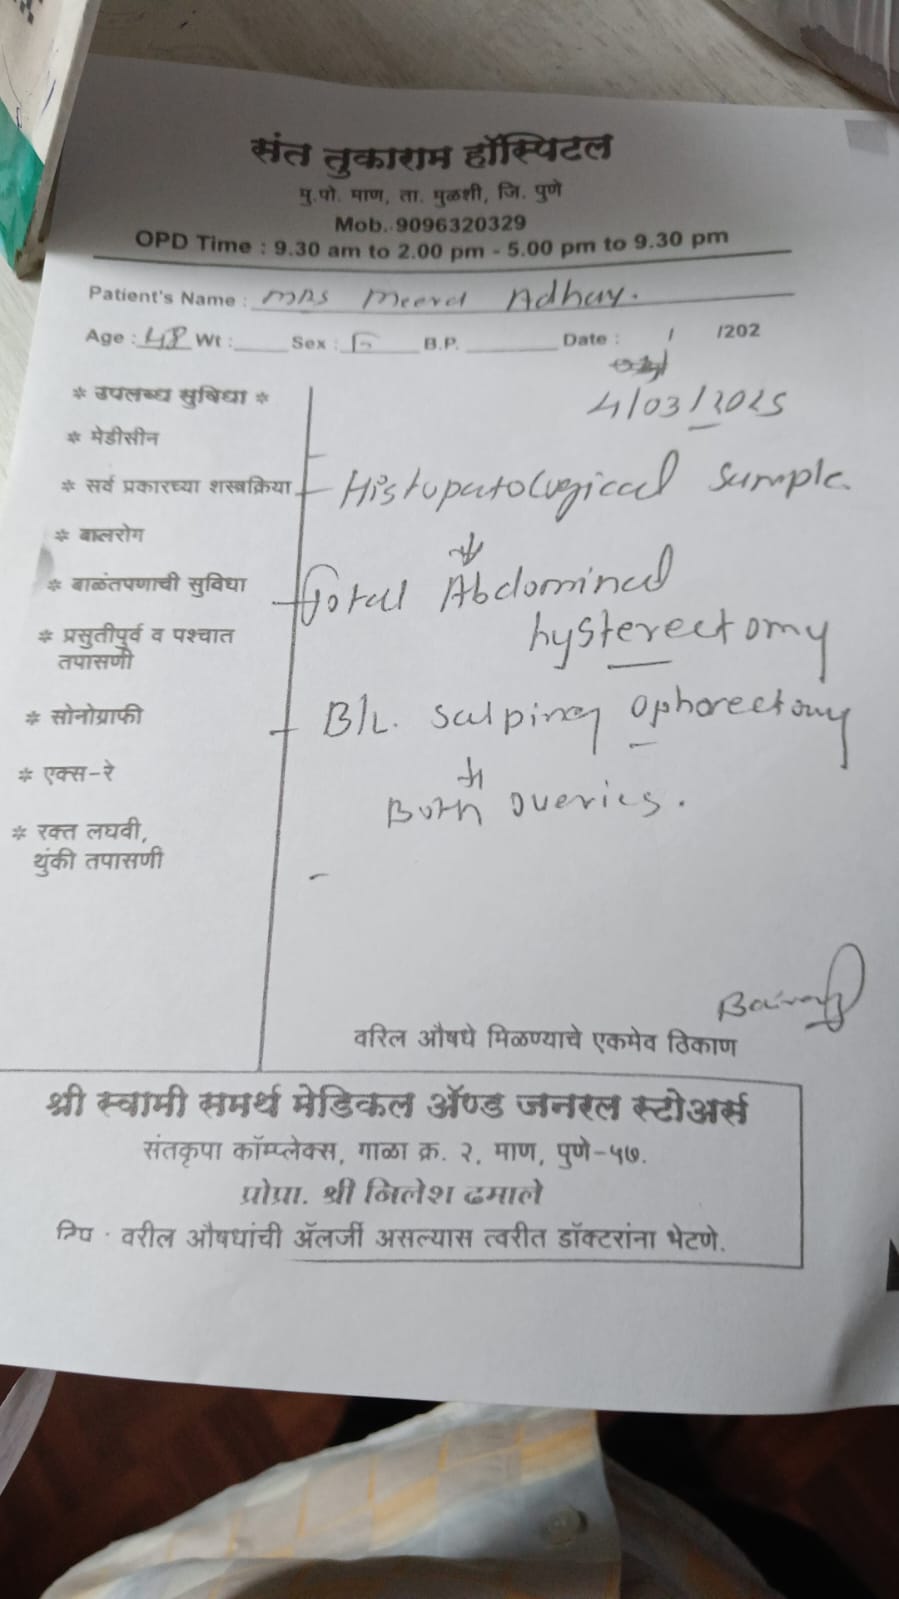 संत तुकाराम हॉस्पिटल
मु.पो. माण, ता. मुळशी, जि. पुणे
Mob. 9096320329
OPD Time : 9.30 am to 2.00 pm - 5.00 pm to 9.30 pm
Patient's Name : Mrs Meera
Age : 48 Wt : Sex : F B.P. Date : / /202
4/03/2025
* उपलब्ध सुविधा *
* मेडीसीन
* सर्व प्रकारच्या शस्त्रक्रिया
* बालरोग
* बाळंतपणाची सुविधा
* प्रसुतीपुर्व व पश्चात
तपासणी
* सोनोग्राफी
* एक्स-रे
* रक्त लघवी,
थुंकी तपासणी
- Histopatological sample.
- Total Abdominal
hysterectomy
- B/L. salpingo ophorectomy
Both overies.
वरिल औषधे मिळण्याचे एकमेव ठिकाण
श्री स्वामी समर्थ मेडिकल ॲण्ड जनरल स्टोअर्स
संतकृपा कॉम्प्लेक्स, गाळा क्र. २, माण, पुणे-५७.
प्रोप्रा. श्री निलेश ढमाले
टिप : वरील औषधांची ॲलर्जी असल्यास त्वरीत डॉक्टरांना भेटणे.